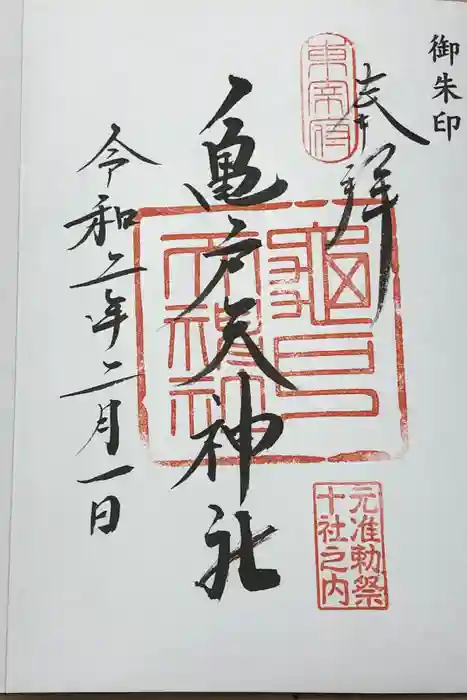 御朱印
奉拝
東宰府
亀戸天神社
龜戸
天神社
元准勅祭
十社之内
令和二年二月一日